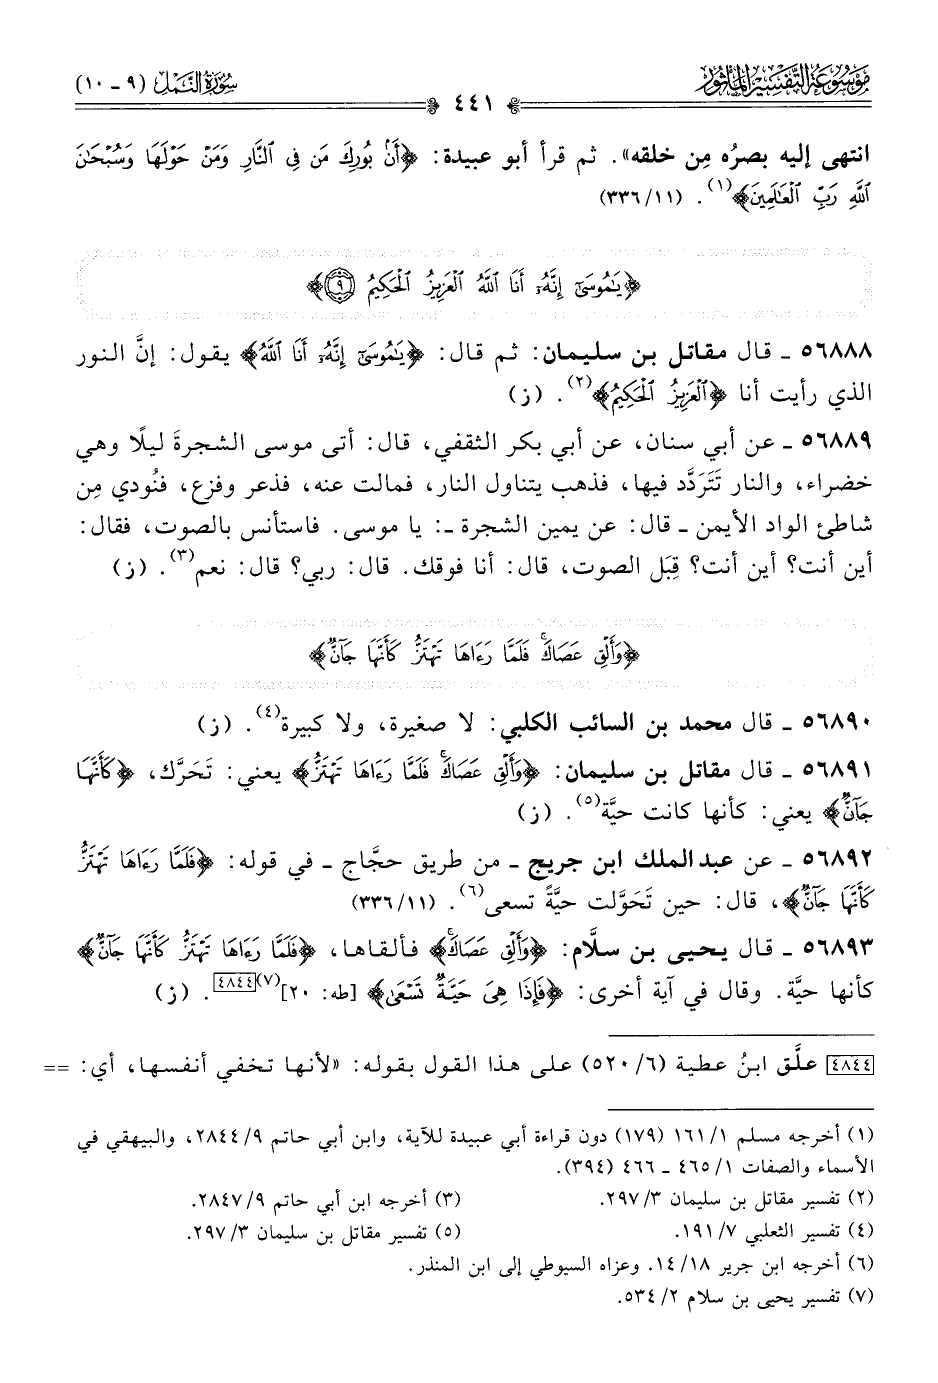 موسوعة التفسير المأثور
سورة النمل (٩ - ١٠)
٤٤١
انتهى إليه بصرُه مِن خلقه». ثم قرأ أبو عبيدة: ﴿أَنۢ بُورِكَ مَن فِي ٱلنَّارِ وَمَنۡ حَوۡلَهَا وَسُبۡحَٰنَ
ٱللَّهِ رَبِّ ٱلۡعَٰلَمِينَ﴾(١). (١١/ ٣٣٦)
﴿يَٰمُوسَىٰٓ إِنَّهُۥٓ أَنَا ٱللَّهُ ٱلۡعَزِيزُ ٱلۡحَكِيمُ ٩﴾
٥٦٨٨٨ - قال مقاتل بن سليمان: ثم قال: ﴿يَٰمُوسَىٰٓ إِنَّهُۥٓ أَنَا ٱللَّهُ﴾ يقول: إنَّ النور
الذي رأيت أنا ﴿ٱلۡعَزِيزُ ٱلۡحَكِيمُ﴾(٢). (ز)
٥٦٨٨٩ - عن أبي سنان، عن أبي بكر الثقفي، قال: أتى موسى الشجرةَ ليلًا وهي
خضراء، والنار تَتَرَدَّد فيها، فذهب يتناول النار، فمالت عنه، فذعر وفزع، فنُودي مِن
شاطئ الواد الأيمن - قال: عن يمين الشجرة -: يا موسى. فاستأنس بالصوت، فقال:
أين أنت؟ أين أنت؟ قِبَل الصوت، قال: أنا فوقك. قال: ربي؟ قال: نعم(٣). (ز)
﴿وَأَلۡقِ عَصَاكَۚ فَلَمَّا رَءَاهَا تَهۡتَزُّ كَأَنَّهَا جَآنّٞ﴾
٥٦٨٩٠ - قال محمد بن السائب الكلبي: لا صغيرة، ولا كبيرة(٤). (ز)
٥٦٨٩١ - قال مقاتل بن سليمان: ﴿وَأَلۡقِ عَصَاكَۚ فَلَمَّا رَءَاهَا تَهۡتَزُّ﴾ يعني: تَحَرَّك، ﴿كَأَنَّهَا
جَآنّٞ﴾ يعني: كأنها كانت حيَّة(٥). (ز)
٥٦٨٩٢ - عن عبد الملك ابن جريج - من طريق حجَّاج - في قوله: ﴿فَلَمَّا رَءَاهَا تَهۡتَزُّ
كَأَنَّهَا جَآنّٞ﴾، قال: حين تَحَوَّلت حيَّةً تسعى(٦). (١١/ ٣٣٦)
٥٦٨٩٣ - قال يحيى بن سلَّام: ﴿وَأَلۡقِ عَصَاكَۚ﴾ فألقاها، ﴿فَلَمَّا رَءَاهَا تَهۡتَزُّ كَأَنَّهَا جَآنّٞ﴾
كأنها حيَّة. وقال في آية أخرى: ﴿فَإِذَا هِيَ حَيَّةٞ تَسۡعَىٰ﴾ [طه: ٢٠](٧)[٤٨٤٤]. (ز)
[٤٨٤٤] علَّق ابنُ عطية (٦/ ٥٢٠) على هذا القول بقوله: «لأنها تخفي أنفسها، أي: ==
(١) أخرجه مسلم ١/ ١٦١ (١٧٩) دون قراءة أبي عبيدة للآية، وابن أبي حاتم ٩/ ٢٨٤٤، والبيهقي في
الأسماء والصفات ١/ ٤٦٥ - ٤٦٦ (٣٩٤).
(٢) تفسير مقاتل بن سليمان ٣/ ٢٩٧. (٣) أخرجه ابن أبي حاتم ٩/ ٢٨٤٧.
(٤) تفسير الثعلبي ٧/ ١٩١. (٥) تفسير مقاتل بن سليمان ٣/ ٢٩٧.
(٦) أخرجه ابن جرير ١٨/ ١٤. وعزاه السيوطي إلى ابن المنذر.
(٧) تفسير يحيى بن سلام ٢/ ٥٣٤.